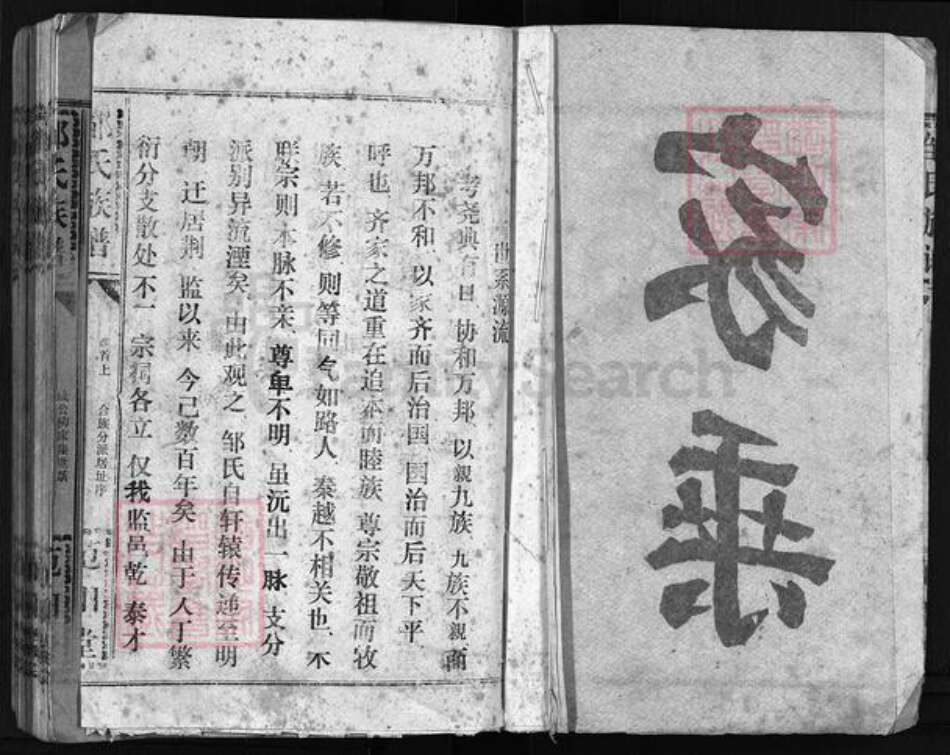 家乘
世系源流
考尧典有曰 协和万邦 以親九族 九族不親 而
万邦不和 以家齐而后治国 国治而后天下平
呼也 齐家之道重在追本而睦族 尊宗敬祖而收
族 若不修 则等同气如路人 秦越不相关也 不
联宗则本脉不亲 尊卑不明 虽沅出一脉 支分
派别异流湮矣 由此观之 邹氏自轩辕传递至明
朝 迁居荆 监以来 今己数百年矣 由于人丁繁
衍分支散处不一 宗祠各立 仅我监邑乾 泰才
氏族谱
卷首上
合族分派居址序